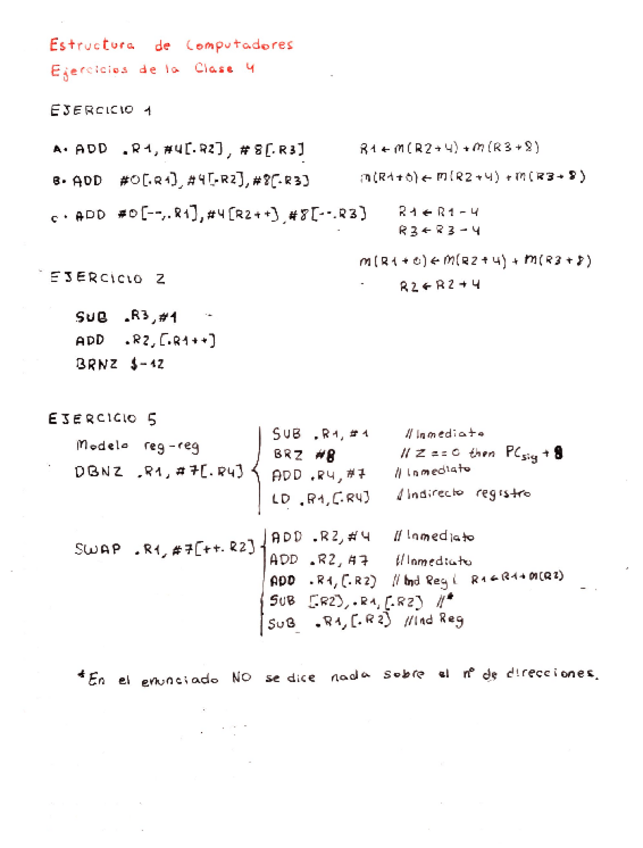 Estructura de Computadores
Ejercicios de la Clase 4
EJERCICIO 1
A. ADD .R1, #4[.R2], #8[.R3] R1 ← M(R2+4) + M(R3+8)
B. ADD #0[.R1], #4[.R2], #8[.R3] M(R1+0) ← M(R2+4) + M(R3+8)
C. ADD #0[--.R1], #4[R2++], #8[--.R3] R1 ← R1-4
R3 ← R3-4
M(R1+0) ← M(R2+4) + M(R3+8)
R2 ← R2+4
EJERCICIO 2
SUB .R3, #1
ADD .R2, [.R1++]
BRNZ $-12
EJERCICIO 5
Modelo reg-reg
DBNZ .R1, #7[.R4]
SUB .R1, #1 // Inmediato
BRZ #8 // Z == 0 then PCsig + 8
ADD .R4, #7 // Inmediato
LD .R1, [.R4] // Indirecto registro
SWAP .R1, #7[++.R2]
ADD .R2, #4 // Inmediato
ADD .R2, #7 // Inmediato
ADD .R1, [.R2) // Ind Reg ¡ R1 ← R1+M(R2)
SUB [.R2), .R1, [.R2) // *
SUB .R1, [.R2) // Ind Reg
*En el enunciado NO se dice nada sobre el nº de direcciones.